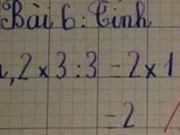 Bài 6: Tính
a, 2 × 3 : 3 = 2 × 1
= 2